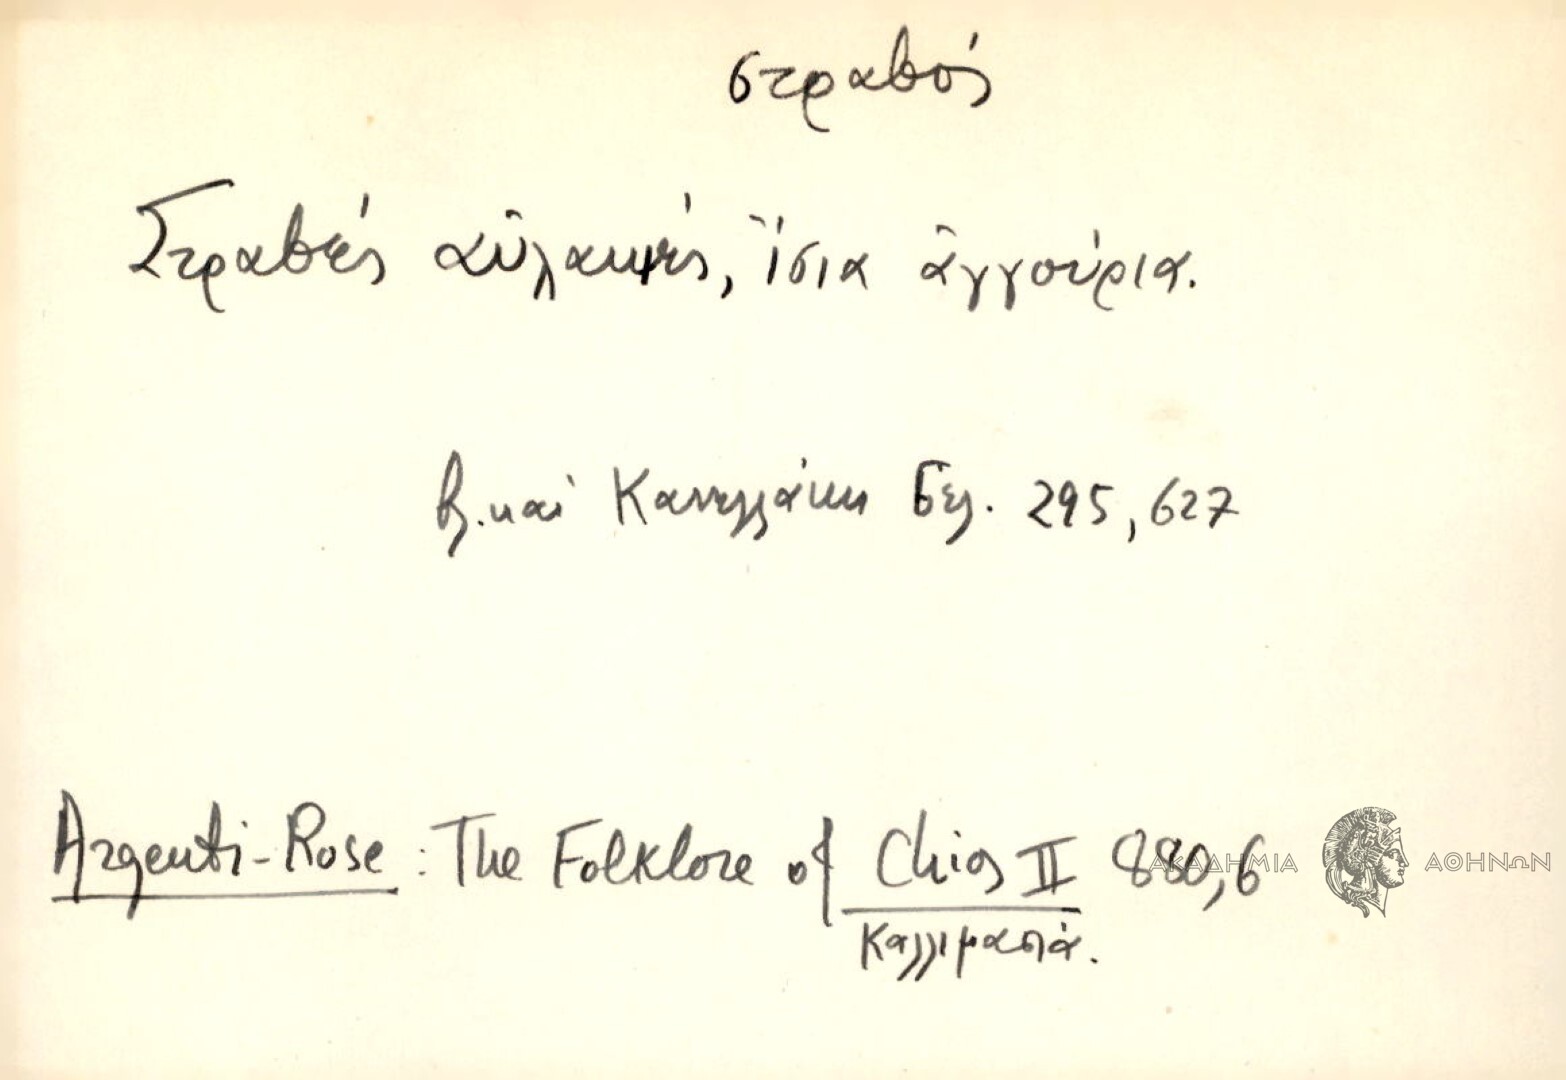 στραβός
Στραβές αὐλακιές, ἴσια ἀγγούρια.
βλ. καὶ Κανελλάκη σελ. 295, 627
Argenti-Rose : The Folklore of Chios II 880,6
Καλλιμασιά.
ΑΚΑΔΗΜΙΑ ΑΘΗΝΩΝ